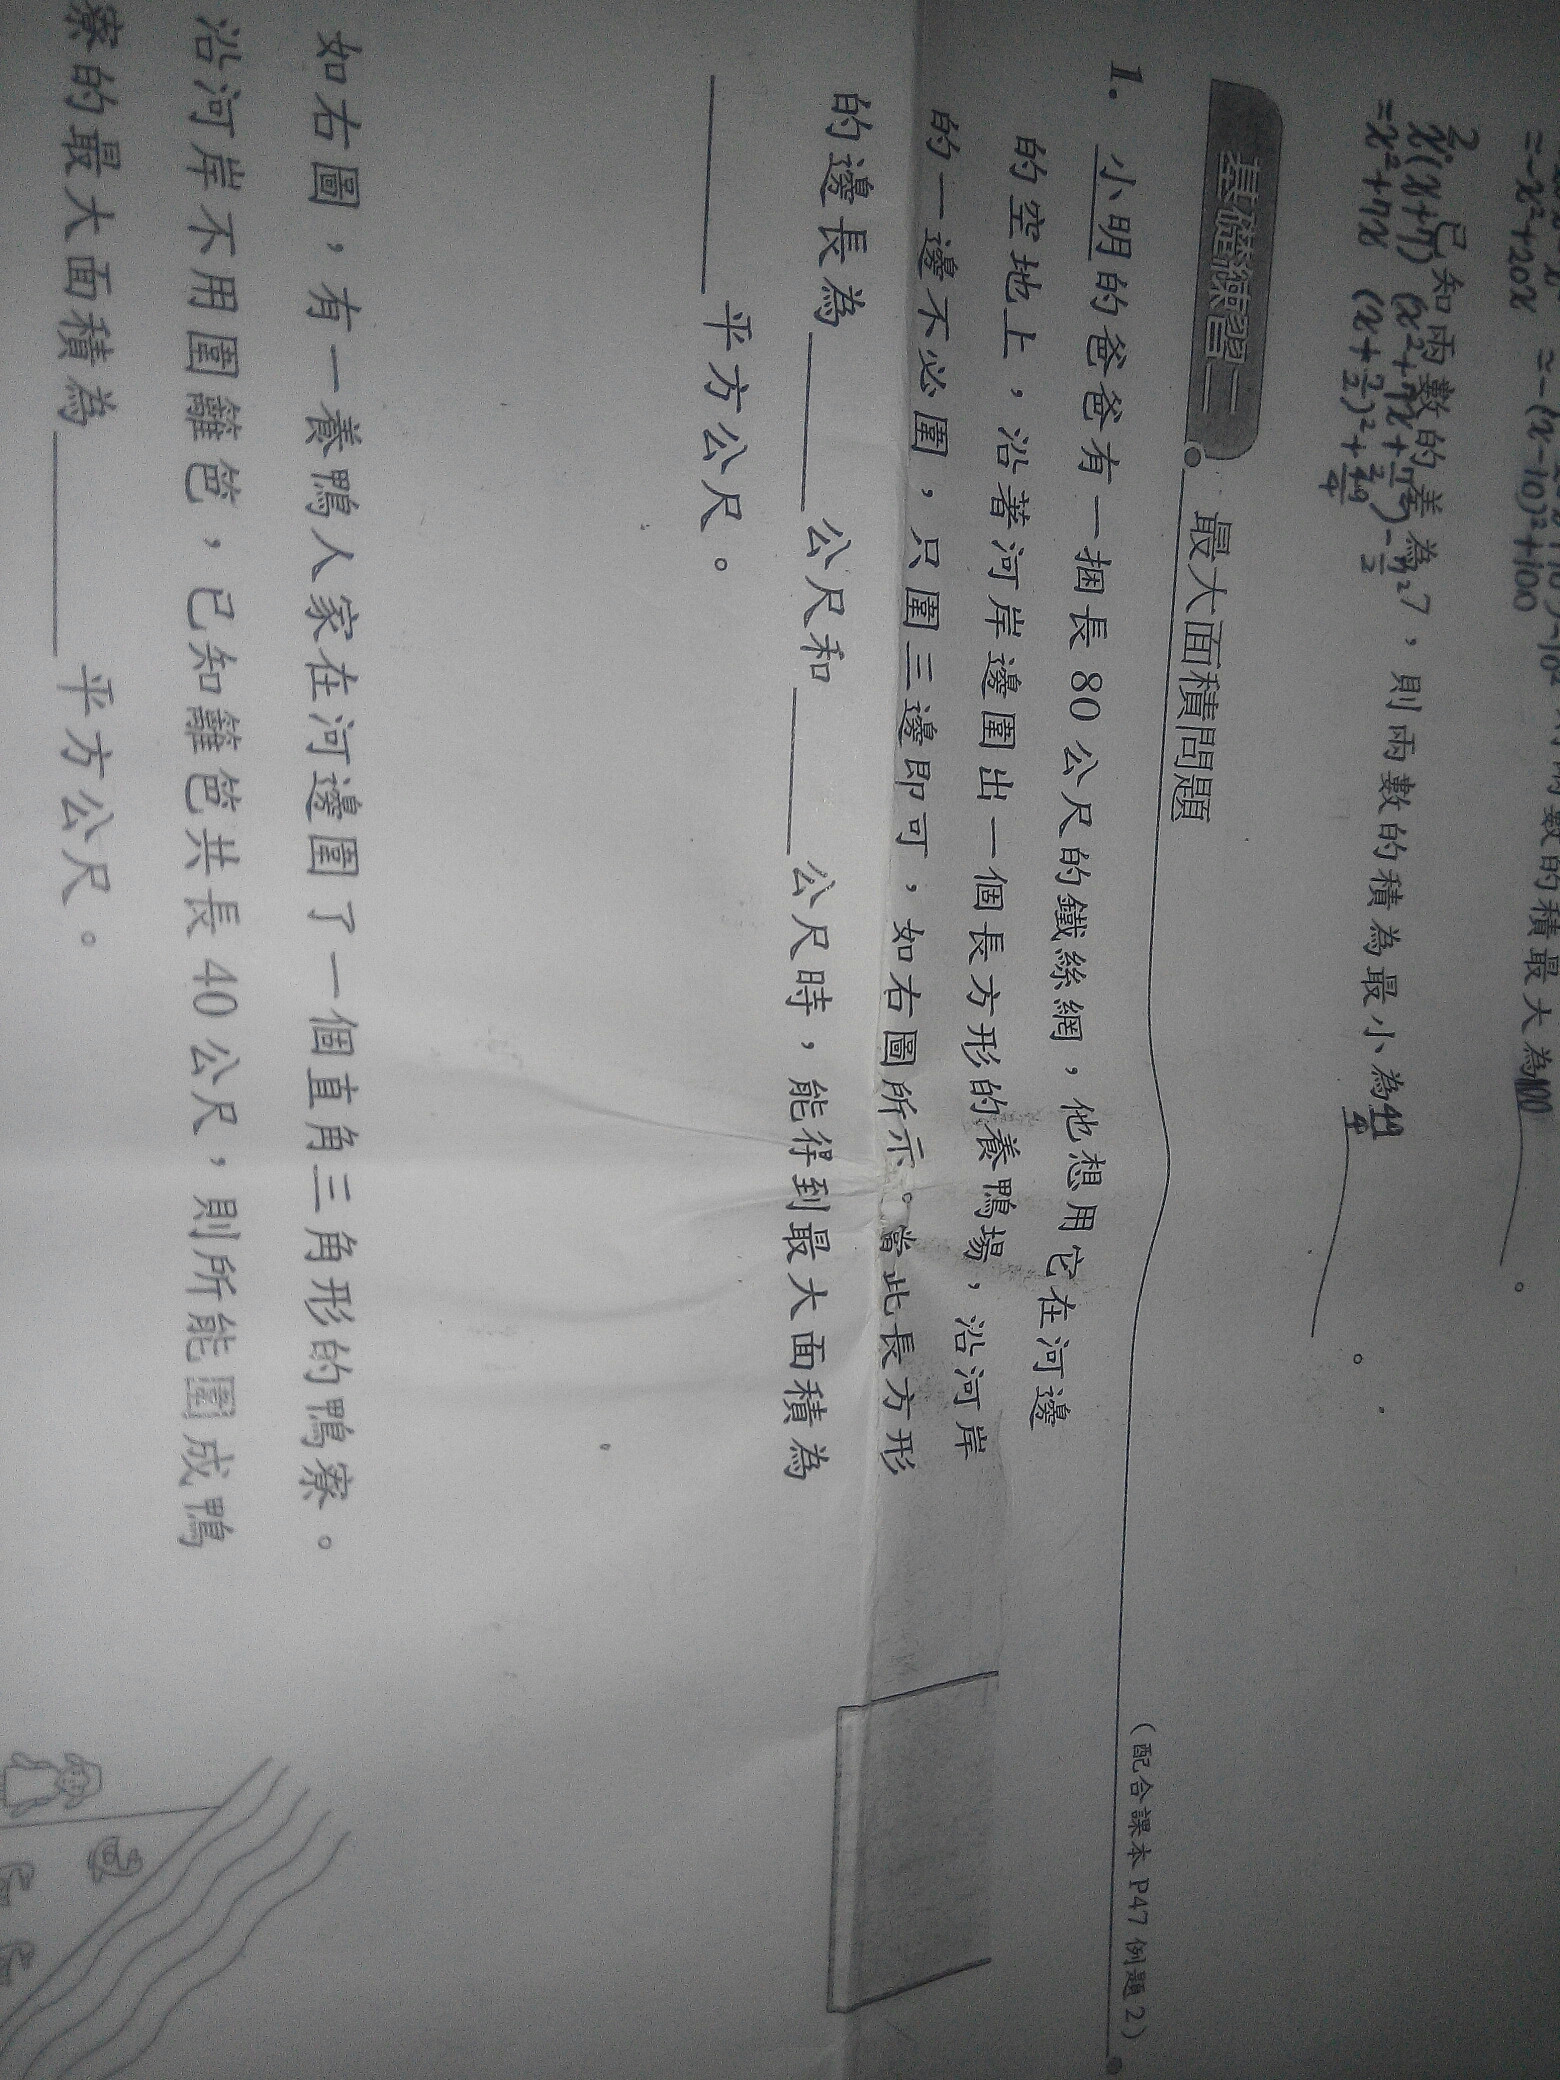 =-x²+20x =-(x-10)²+100
數的積最大為100。
2. 已知兩數的差為7,則兩數的積為最小為49/4。
x(x+7) (x²+7x+
=x²+7x (x+7/2)²+49/4
基礎練習二 最大面積問題
(配合課本 P47 例題 2)
1. 小明的爸爸有一捆長 80 公尺的鐵絲網,他想用它在河邊
的空地上,沿著河岸邊圍出一個長方形的養鴨場,沿河岸
的一邊不必圍,只圍三邊即可,如右圖所示。當此長方形
的邊長為______公尺和______公尺時,能得到最大面積為
______平方公尺。
如右圖,有一養鴨人家在河邊圍了一個直角三角形的鴨寮。
沿河岸不用圍籬笆,已知籬笆共長 40 公尺,則所能圍成鴨
寮的最大面積為______平方公尺。